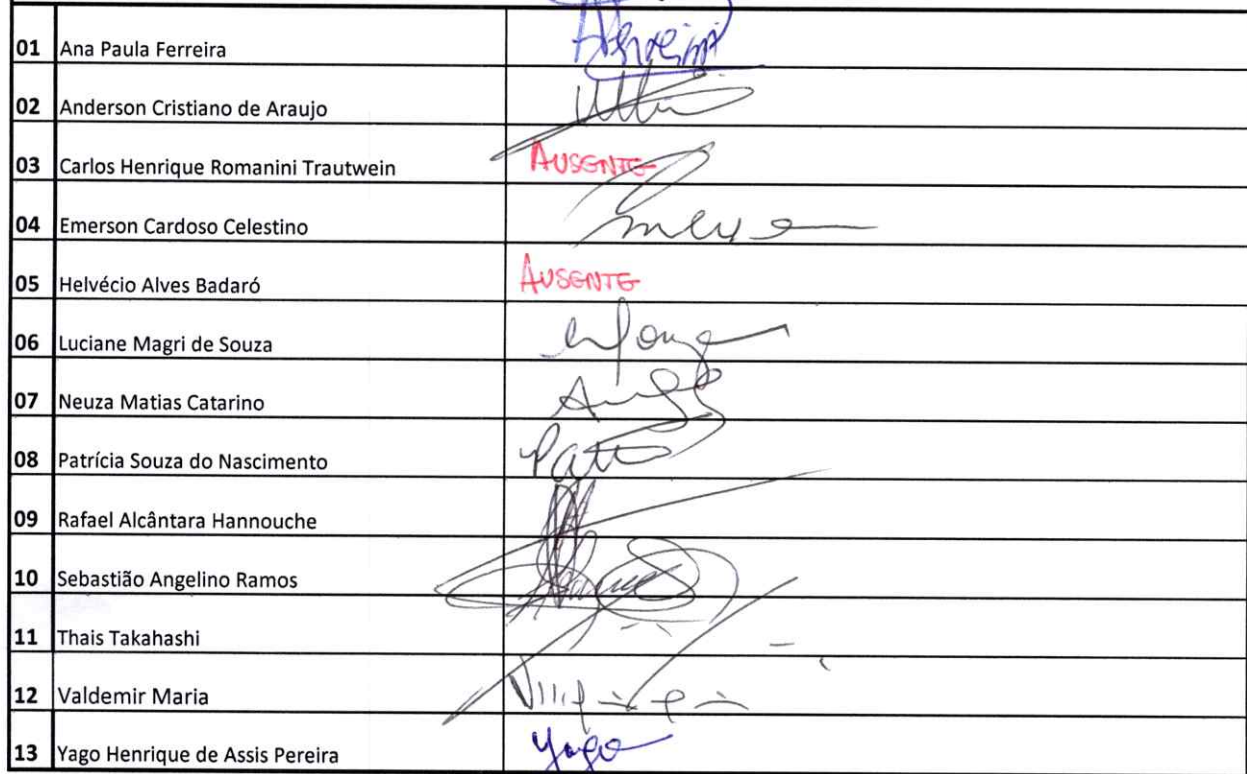 01 Ana Paula Ferreira
02 Anderson Cristiano de Araujo
03 Carlos Henrique Romanini Trautwein AUSENTE
04 Emerson Cardoso Celestino
05 Helvécio Alves Badaró AUSENTE
06 Luciane Magri de Souza
07 Neuza Matias Catarino
08 Patrícia Souza do Nascimento
09 Rafael Alcântara Hannouche
10 Sebastião Angelino Ramos
11 Thais Takahashi
12 Valdemir Maria
13 Yago Henrique de Assis Pereira Yago